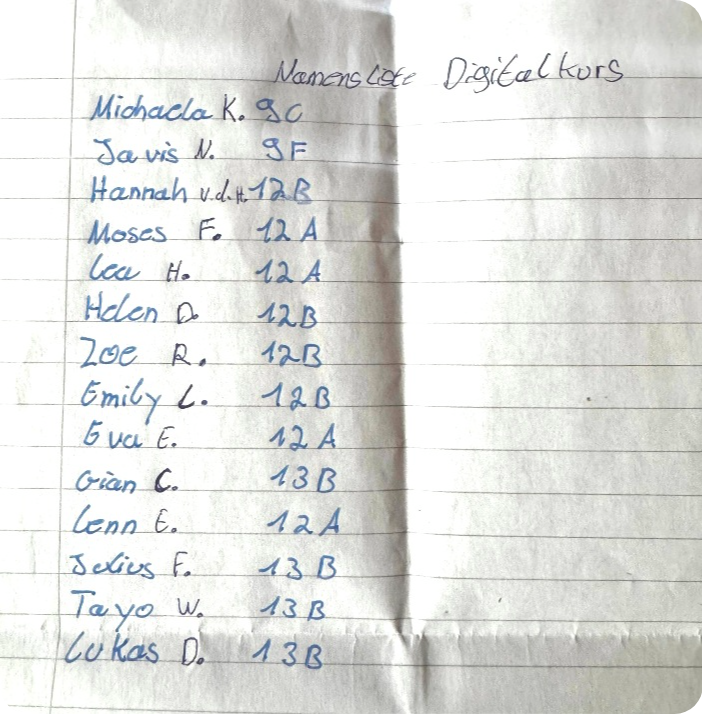 Namensliste Digitalkurs
Michaela K. 9C
Javis N. 9F
Hannah v.d.H. 12B
Moses F. 12A
Lea H. 12A
Helen D. 12B
Zoe R. 12B
Emily L. 12B
Eva E. 12A
Gian C. 13B
Lenn E. 12A
Julius F. 13B
Tayo W. 13B
Lukas D. 13B